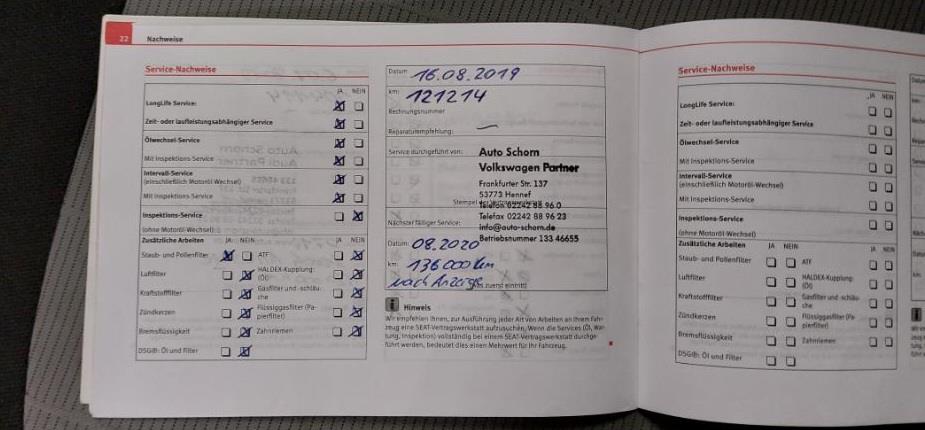 22 Nachweise
Service-Nachweise
JA NEIN
LongLife Service:
Zeit- oder laufleistungsabhängiger Service
Ölwechsel-Service
Mit Inspektions-Service
Intervall-Service
(einschließlich Motoröl-Wechsel)
Mit Inspektions-Service
Inspektions-Service
(ohne Motoröl-Wechsel)
Zusätzliche Arbeiten JA NEIN JA NEIN
Staub- und Pollenfilter ATF
Luftfilter HALDEX-Kupplung:
(Öl)
Kraftstofffilter Gasfilter und -schläu-
che
Zündkerzen Flüssiggasfilter (Pa-
pierfilter)
Bremsflüssigkeit Zahnriemen
DSG®: Öl und Filter
Datum 16.08.2019
km: 121214
Rechnungsnummer
Reparaturempfehlung: —
Service durchgeführt von: Auto Schorn
Volkswagen Partner
Frankfurter Str. 137
53773 Hennef
Telefon 02242 88 96 0
Telefax 02242 88 96 23
Nächster fälliger Service: info@auto-schorn.de
Betriebsnummer 133 46655
Datum: 08.2020
km: 136000 km
nach Anzeige
zuerst eintritt)
i Hinweis
Wir empfehlen Ihnen, zur Ausführung jeder Art von Arbeiten an Ihrem Fahr-
zeug eine SEAT-Vertragswerkstatt aufzusuchen. Wenn die Services (Öl, War-
tung, Inspektion) vollständig bei einem SEAT-Vertragswerkstatt durchge-
führt werden, bedeutet dies einen Mehrwert für Ihr Fahrzeug.
Service-Nachweise
JA NEIN
LongLife Service:
Zeit- oder laufleistungsabhängiger Service
Ölwechsel-Service
Mit Inspektions-Service
Intervall-Service
(einschließlich Motoröl-Wechsel)
Mit Inspektions-Service
Inspektions-Service
(ohne Motoröl-Wechsel)
Zusätzliche Arbeiten JA NEIN JA NEIN
Staub- und Pollenfilter ATF
Luftfilter HALDEX-Kupplung:
(Öl)
Kraftstofffilter Gasfilter und -schläu-
che
Zündkerzen Flüssiggasfilter (Pa-
pierfilter)
Bremsflüssigkeit Zahnriemen
DSG®: Öl und Filter